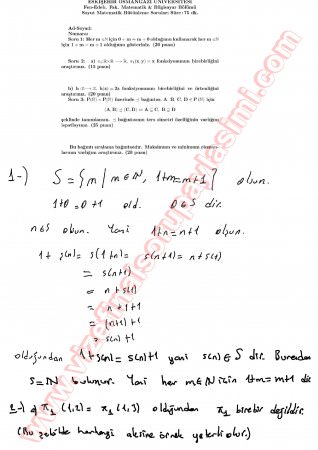 ESKİŞEHİR OSMANGAZİ ÜNİVERSİTESİ
Fen-Edeb. Fak. Matematik & Bilgisayar Bölümü
Soyut Matematik Bütünleme Soruları Süre: 75 dk.
Ad-Soyad:
Numara:
Soru 1: Her m ∈ℕ için 0 + m = m + 0 olduğunu kullanarak her m ∈ℕ
için 1 + m = m + 1 olduğunu gösteriniz. (20 puan)
Soru 2: a) fonksiyonunun birebirliğini
araştırınız. (15 puan)
b) h: h(n) = 2n fonksiyonunun birebirliğini ve örtenliğini
araştırınız. (20 puan)
Soru 3: P(E) × P(E) üzerinde ⪯ bağıntısı, A, B, C, D ∈ P(E) için
(A, B) ⪯ (C, D) ⇔ A ⊆ C, B ⊇ D
şeklinde tanımlansın. ⪯ bağıntısının ters simetri özelliğinin varlığını
ispatlayınız. (25 puan)
Bu bağıntı sıralama bağıntısıdır. Maksimum ve minimum eleman-
larının varlığını araştırınız. (20 puan)
1-) S = {m | m∈ℕ, 1+m=m+1} olsun.
1+0 = 0+1 old. 0∈S dir.
n∈S olsun. Yani 1+n=n+1 olsun.
1+ s(n) = s(1+n) = s(n+1) = n+s(1)
= s(n+1)
= n+s(1)
= n+1+1
= (n+1)+1
= s(n)+1
olduğundan 1+s(n) = s(n)+1 yani s(n)∈S dir. Buradan
S=ℕ bulunur. Yani her m∈ℕ için 1+m=m+1 dir
2-) a) π₁(1,2) = π₁(1,3) olduğundan π₁ birebir değildir.
(Bu şekilde herhangi aksine örnek yeterli olur.)
www.vizefinalsorupaylasimi.com